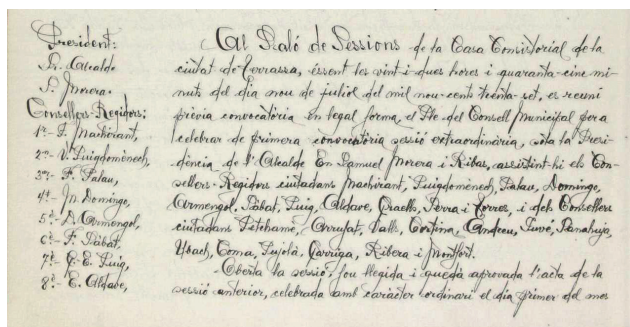 President:
Sr. Alcalde
S. Morera
Consellers-Regidors:
1er- F. Machirant,
2on- V. Puigdomènech,
3er- F. Palau,
4t- Jn. Domingo,
5è- D. Armengol,
6è- F. Pàbat,
7è- E. E. Puig,
8è- E. Aldave,
Al Saló de Sessions de la Casa Consistorial de la
ciutat de Terrassa, essent les vint-i-dues hores i quaranta-cinc mi-
nuts del dia nou de juliol del mil nou-cents trenta-set, es reuní
prèvia convocatòria en legal forma, el Ple del Consell Municipal per a
celebrar de primera convocatòria sessió extraordinària, sota la Presi-
dència de l'Alcalde En Samuel Morera i Ribas, assistint-hi els Con-
sellers-Regidors ciutadans Machirant, Puigdomènech, Palau, Domingo,
Armengol, Pàbat, Puig, Aldave, Graells, Serra i Torres, i dels Consellers
ciutadans Pitchamé, Arrufat, Valls, Cortina, Andreu, Juvé, Panahuja,
Ubach, Coma, Pujolà, Garriga, Ribera i Montfort.
Oberta la sessió, fou llegida i quedà aprovada l'acta de la
sessió anterior, celebrada amb caràcter ordinari el dia primer del mes